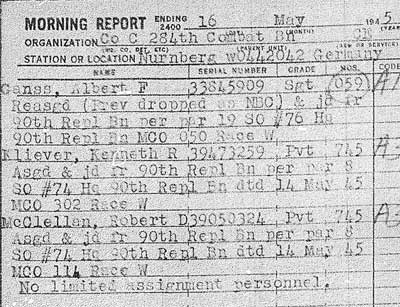 MORNING REPORT ENDING 2400 16 May 1945
ORGANIZATION Co C 284th Combat Bn
STATION OR LOCATION Nurnberg w0442042 Germany
NAME SERIAL NUMBER GRADE MOS. CODE
Ganss, Albert F 33845909 Sgt (059)
Reasgd (Prev dropped as NBC) & jd fr
90th Repl Bn per par 19 SO #76 Hq
90th Repl Bn MCO 050 Race W
Kliever, Kenneth R 39473259 Pvt 745
Asgd & jd fr 90th Repl Bn per par 8
SO #74 Hq 90th Repl Bn dtd 14 May 45
MCO 302 Race W
McClellan, Robert D 39050324 Pvt 745
Asgd & jd fr 90th Repl Bn per par 8
SO #74 Hq 90th Repl Bn dtd 14 May 45
MCO 114 Race W
No limited assignment personnel.